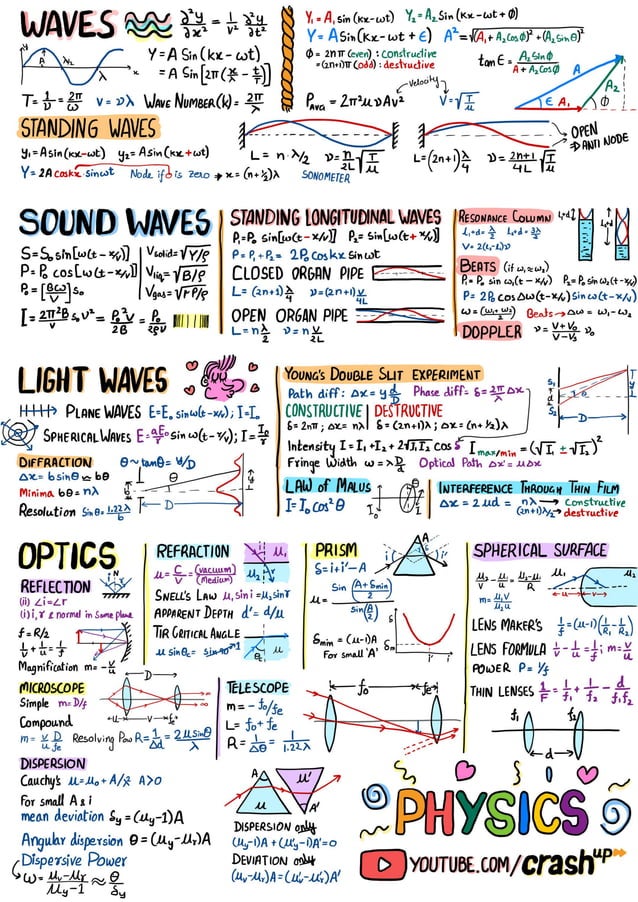 WAVES
∂²y/∂x² = 1/v² ∂²y/∂t²
Y = A Sin (kx - ωt)
= A Sin [2π(x/λ - t/T)]
T = 1/ν = 2π/ω v = νλ WAVE NUMBER(k) = 2π/λ
Y₁ = A₁ sin (kx-ωt) Y₂ = A₂ Sin (kx - ωt + Ø)
Y = A Sin (kx - ωt + ε) A² = √(A₁ + A₂ cos Ø)² + (A₂ Sin Ø)²
Ø = 2nπ (even) : constructive
= (2n+1)π (odd) : destructive
tan ε = A₂ Sin Ø / A + A₂ cos Ø
Pavg = 2π²μνAν² velocity V = √T/μ
A A₂ ε A₁ Ø
STANDING WAVES
y₁ = A sin (kx-ωt) y₂ = A sin (kx+ωt)
Y = 2A cos kx · sin ωt Node if is zero → x = (n+½)λ
L = n · λ/2 ν = n/2L √T/μ
SONOMETER
L = (2n+1) λ/4 ν = 2n+1/4L √T/μ
OPEN
⇒ ANTI NODE
SOUND WAVES
S = S₀ sin [ω(t - x/v)]
P = P₀ cos [ω(t - x/v)]
P₀ = [Bω/V] S₀
I = 2π²B/V S₀ ν² = P₀² V/2B = P₀²/2ρV
Vsolid = √Y/ρ
Vliq = √B/ρ
Vgas = √rP/ρ
STANDING LONGITUDINAL WAVES
P₁ = P₀ sin [ω(t - x/v)] P₂ = Sin [ω(t + x/v)]
P = P₁ + P₂ = 2P₀ cos kx Sin ωt
CLOSED ORGAN PIPE
L = (2n+1) λ/4 ν = (2n+1) V/4L
OPEN ORGAN PIPE
L = n λ/2 ν = n V/2L
RESONANCE COLUMN
L₁+d = λ/2 L₂+d = 3λ/4
V = 2(L₂-L₁)ν
L₁+d L₂+d
BEATS (if ω₁ ≈ ω₂)
P₁ = P₀ sin ω₁(t - x/v) P₂ = P₀ sin ω₂(t - x/v)
P = 2P₀ cos Δω(t-x/v) Sin ω(t-x/v)
ω = (ω₁+ω₂)/2 Beats → Δω = ω₁ - ω₂
DOPPLER ν = V + V₀/V - Vs ν₀
LIGHT WAVES
PLANE WAVES E = E₀ sin ω(t - x/v); I = I₀
SPHERICAL WAVES E = aE₀/r sin ω(t - r/v); I = I₀/r²
DIFFRACTION θ ~ tanθ = y/D
Δx = b sinθ ≈ bθ
Minima bθ = nλ
Resolution Sin θ = 1.22λ/b
b θ y D
YOUNG'S DOUBLE SLIT EXPERIMENT
Path diff : Δx = y d/D Phase diff : δ = 2π/λ Δx
CONSTRUCTIVE | DESTRUCTIVE
δ = 2nπ ; Δx = nλ | δ = (2n+1)λ ; Δx = (n+½)λ
Intensity I = I₁ + I₂ + 2√I₁ I₂ cos δ I max/min = (√I₁ ± √I₂)²
Fringe Width ω = λD/d Optical Path Δx' = μΔx
S₁ d S₂ θ y D
LAW OF MALUS
I = I₀ cos² θ
I₀ θ I
INTERFERENCE THROUGH THIN FILM
Δx = 2μd = nλ → Constructive
(2n+1)λ/2 → destructive
OPTICS
REFLECTION
i N r
(ii) ∠i = ∠r
(i) i, r & normal in Same plane
f = R/2
1/v + 1/u = 1/f
Magnification m = - v/u
REFRACTION
μ = C/V = (vacuum)/(Medium)
SNELL'S LAW μ₁ sin i = μ₂ sin r
APPARENT DEPTH d' = d/μ
TIR CRITICAL ANGLE
μ sin θc = sin 90° 1
μ₁ μ₂ θc
PRISM
δ = i + i' - A
μ = Sin (A+δmin/2) / sin (A/2)
δmin = (μ-1)A
For small 'A'
A i i' δ δm i' i
SPHERICAL SURFACE
μ₂/v - μ₁/u = μ₂-μ₁/R
m = μ₁V/μ₂u
μ₁ μ₂ u v
LENS MAKER'S 1/f = (μ-1)(1/R₁ - 1/R₂)
LENS FORMULA 1/v - 1/u = 1/f ; m = v/u
POWER P = 1/f
THIN LENSES 1/F = 1/f₁ + 1/f₂ - d/f₁f₂
f₁ f₂ d
MICROSCOPE
Simple m = D/f
Compound
m = v/u D/fe Resolving Pow R = 1/Δd = 2μ sinθ/λ
D u v fe
TELESCOPE
m = - f₀/fe
L = f₀ + fe
R = 1/Δθ = 1/1.22λ
f₀ fe
DISPERSION
Cauchy's μ = μ₀ + A/λ² A>0
For small A & i
mean deviation δy = (μy-1)A
Angular dispersion θ = (μy-μr)A
Dispersive Power
ω = μv-μr/μy-1 ≈ θ/δy
A μ μ' A'
DISPERSION only
(μy-1)A + (μ'y-1)A' = 0
DEVIATION only
(μv-μr)A = (μ'v-μ'r)A'
PHYSICS
YOUTUBE.COM/crashup